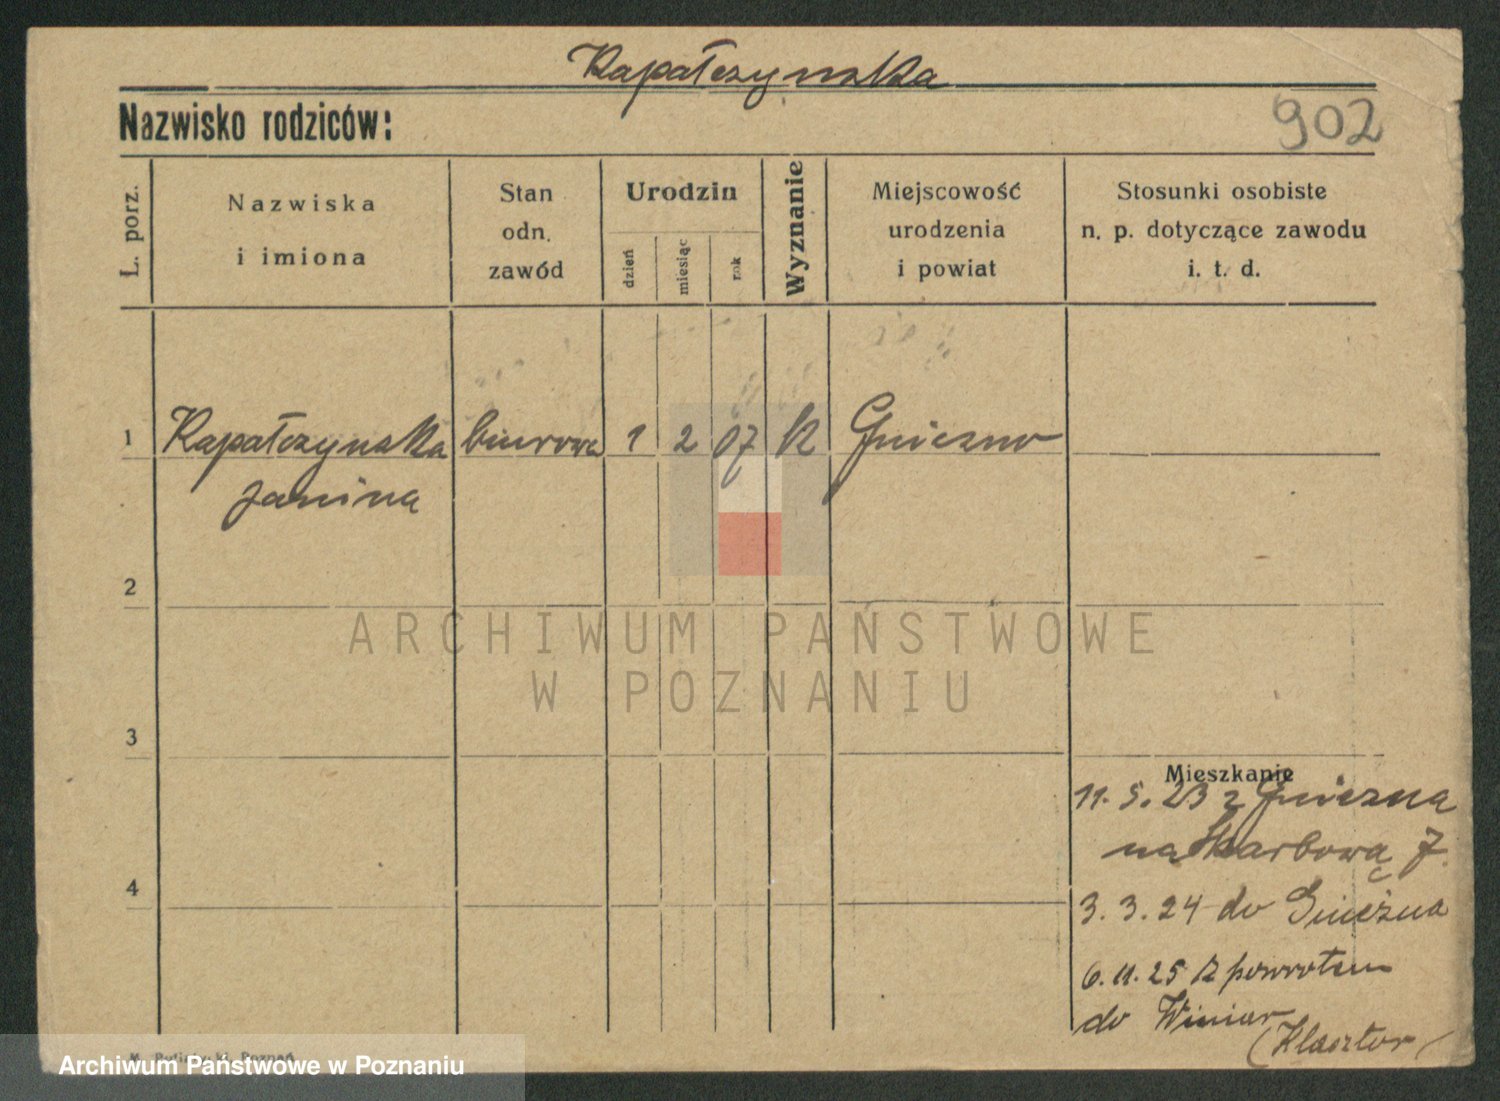 Kapałczynska
Nazwisko rodziców:
902
L. porz.
Nazwiska
i imiona
Stan
odn.
zawód
Urodzin
dzień
miesiąc
rok
Wyznanie
Miejscowość
urodzenia
i powiat
Stosunki osobiste
n. p. dotyczące zawodu
i. t. d.
1 Kapałczynska biurowa 1 2 07 K Gniezno
Janina
2
3
Mieszkanie
11. 5. 23 z Gniezna
na Skarbową 7.
4
3. 3. 24 do Gniezna
6. 11. 25 z powrotem
do Winiar
(Klasztor)
ARCHIWUM PAŃSTWOWE
W POZNANIU
Archiwum Państwowe w Poznaniu